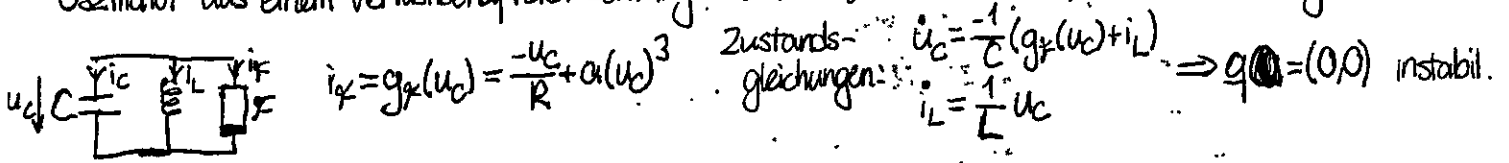 Oszillator aus einem
u_C↓ C i_C i_L i_F F
i_F = g_F(u_C) = -u_C/R + a(u_C)^3
Zustands-
gleichungen:
u̇_C = -1/C (g_F(u_C) + i_L)
i̇_L = 1/L u_C
⇒ q = (0,0) instabil.